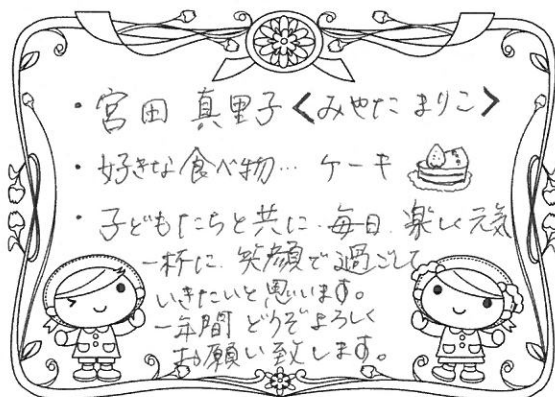 ・宮田 真里子<みやた まりこ>
・好きな食べ物… ケーキ
・子どもたちと共に、毎日、楽しく元気
一杯に、笑顔で過ごして
いきたいと思います。
一年間 どうぞよろしく
お願い致します。